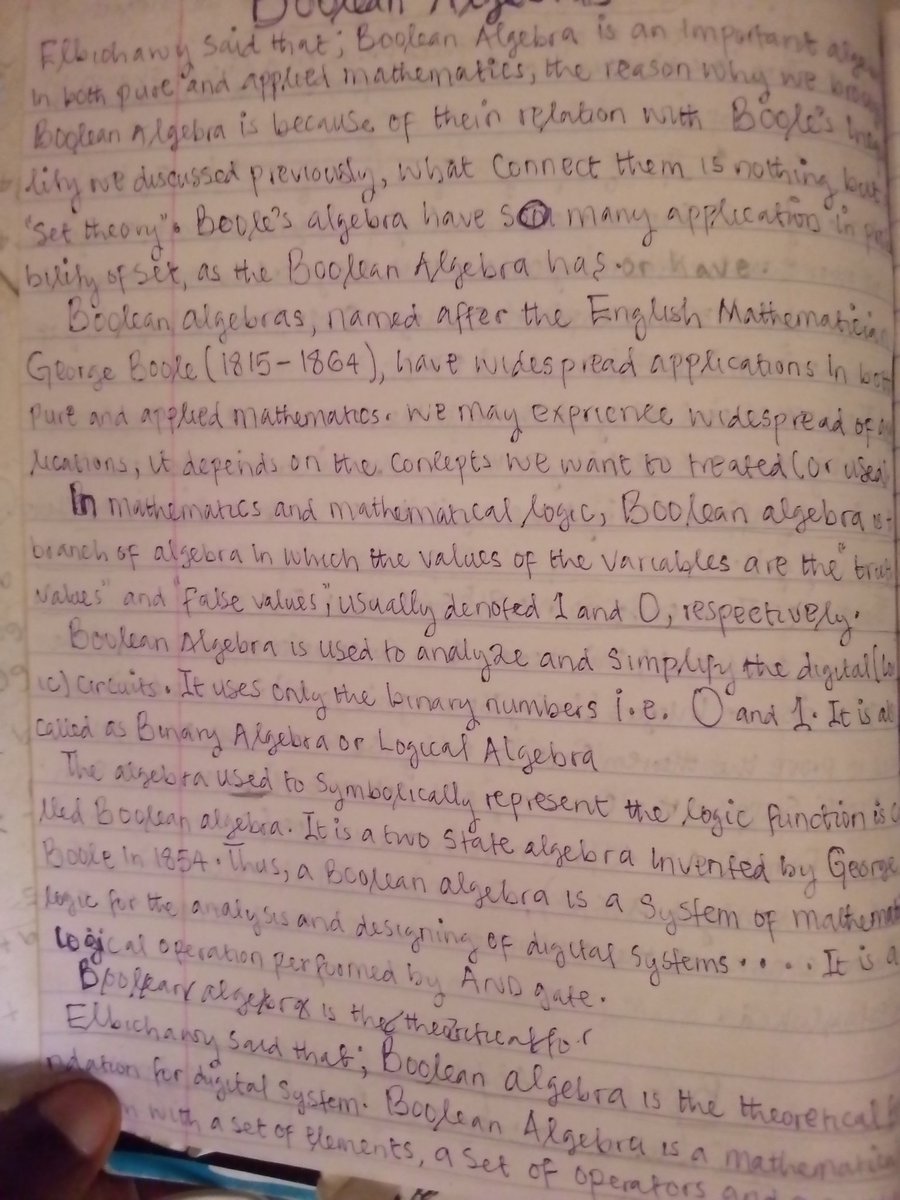 Boolean Algebras
Elbichawy said that; Boolean Algebra is an important
in both pure and applied mathematics, the reason why we
Boolean Algebra is because of their relation with Boole's
lity we discussed previously, what connect them is nothing but
"set theory". Boole's algebra have so many application in
bility of set, as the Boolean Algebra has. or have.
Boolean algebras, named after the English Mathematician
George Boole (1815-1864), have widespread applications in both
Pure and applied mathematics. we may exprience widespread of
lications, it depends on the concepts we want to treated (or used)
In mathematics and mathematical logic, Boolean algebra is
branch of algebra in which the values of the variables are the "
values" and "false values", usually denoted 1 and 0, respectively.
Boolean Algebra is used to analyze and simplify the digital (lo
ic) circuits. It uses only the binary numbers i.e. 0 and 1. It is al
called as Binary Algebra or Logical Algebra
The algebra used to symbolically represent the logic function is c
lled Boolean algebra. It is a two state algebra invented by George
Boole in 1854. Thus, a Boolean algebra is a system of mathemat
logic for the analysis and designing of digital systems ..... It is a
Logical operation performed by AND gate.
Boolean algebra is the
Elbichawy said that; Boolean algebra is the theoretical
ndation for digital system. Boolean Algebra is a mathematica
with a set of elements, a set of operators and